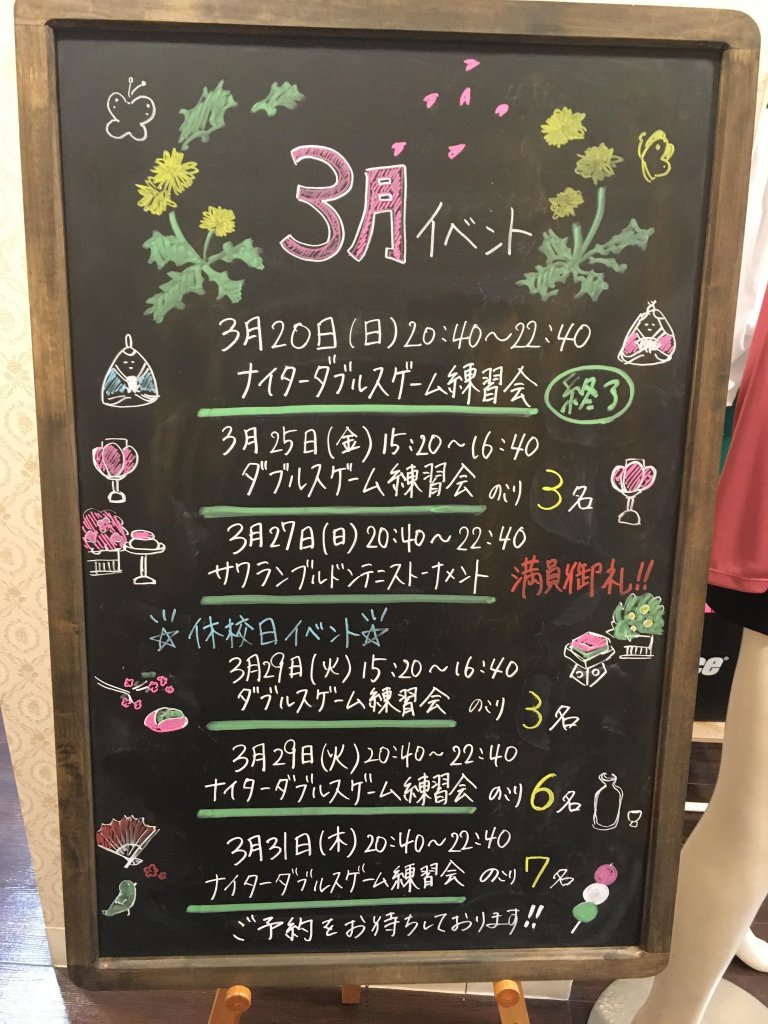 3月イベント
3月20日(日)20:40〜22:40
ナイターダブルスゲーム練習会 終了
3月25日(金)15:20〜16:40
ダブルスゲーム練習会 のこり3名
3月27日(日)20:40〜22:40
サワランブルドンテニストーナメント 満員御礼!!
☆休校日イベント☆
3月29日(火)15:20〜16:40
ダブルスゲーム練習会 のこり3名
3月29日(火)20:40〜22:40
ナイターダブルスゲーム練習会 のこり6名
3月31日(木)20:40〜22:40
ナイターダブルスゲーム練習会 のこり7名
ご予約をお待ちしております!!